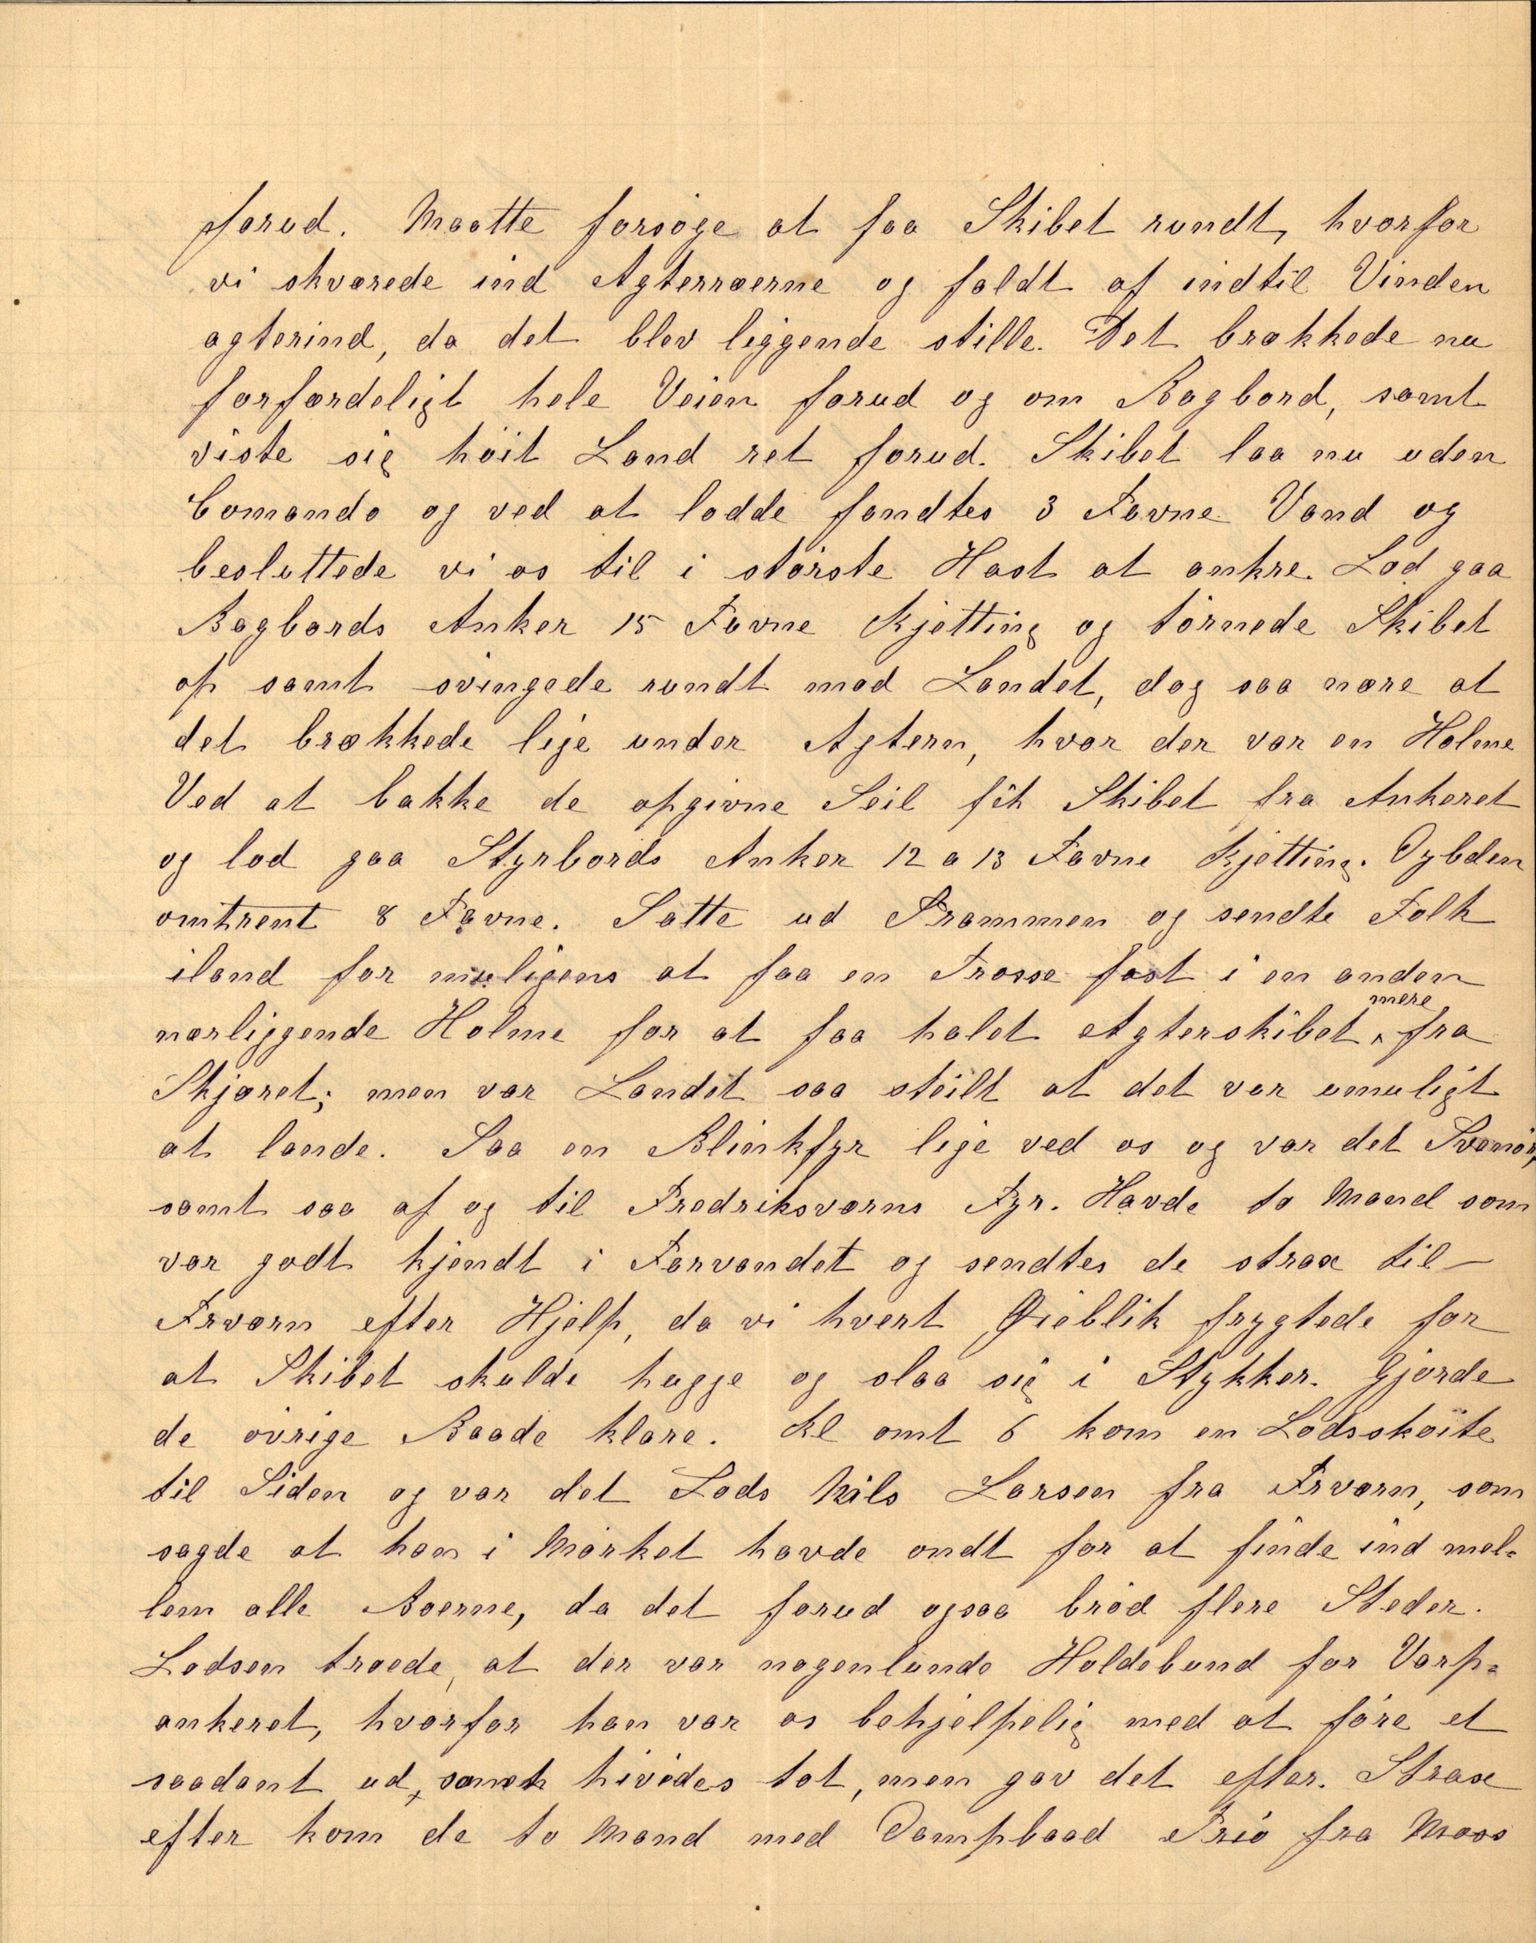 forud. Maatte forsøge at faa Skibet rundt, hvorfor
vi skværede ind Agterræerne og faldt af indtil Vinden
agterind, da det blev liggende stille. Det brækkede nu
forfærdeligt hele Veien forud og om Bagbord, samt
viste sig höit Land ret forud. Skibet laa nu uden
Comando og ved at lodde fandtes 3 Favne Vand og
besluttede vi os til i största Hast at ankre. Lod gaa
Bagbords Anker 15 Favne Kjetting og törnede Skibet
op samt svingede rundt mod Landet, dog saa nære at
det brækkede lige under Agtern, hvor der var en Holme
Ved at bakke de opgivne Seil fik Skibet fra Ankeret
og lod gaa Styrbords Anker 12 a 13 Favne Kjetting. Dybden
omtrent 8 Favne. Satte ud Prammen og sendte Folk
iland for muligens at faa en Trosse fast i en anden
nærliggende Holme for at faa halet Agterskibet mere fra
Skjæret; men var Landet saa steilt at det var umuligt
at lande. Saa en Blinkfyr lige ved os og var det Svenör,
samt saa af og til Fredriksværns Fyr. Havde to Mand som
var godt kjendt i Farvandet og sendtes de strax til
Frværn efter Hjelp, da vi hvert Øieblik frygtede for
at Skibet skulde hugge og slaa sig i Stykker. Gjorde
de övrige Baade klare. Kl omt 6 kom en Lodsskøite
til Siden og var det Lods Nils Larsen fra Frværn, som
sagde at han i Mörket havde ondt for at finde ind mel=
lem alle Baerne, da det forud ogsaa bröd flere Steder.
Lodsen troede, at der var nogenlunde Holdebund for Varp=
ankeret, hvorfor han var os behjelpelig med at före et
saadant ud, samt hivedes tot, men gav det efter. Strax
efter kom de to Mand med Dampbaad Frio fra Moss